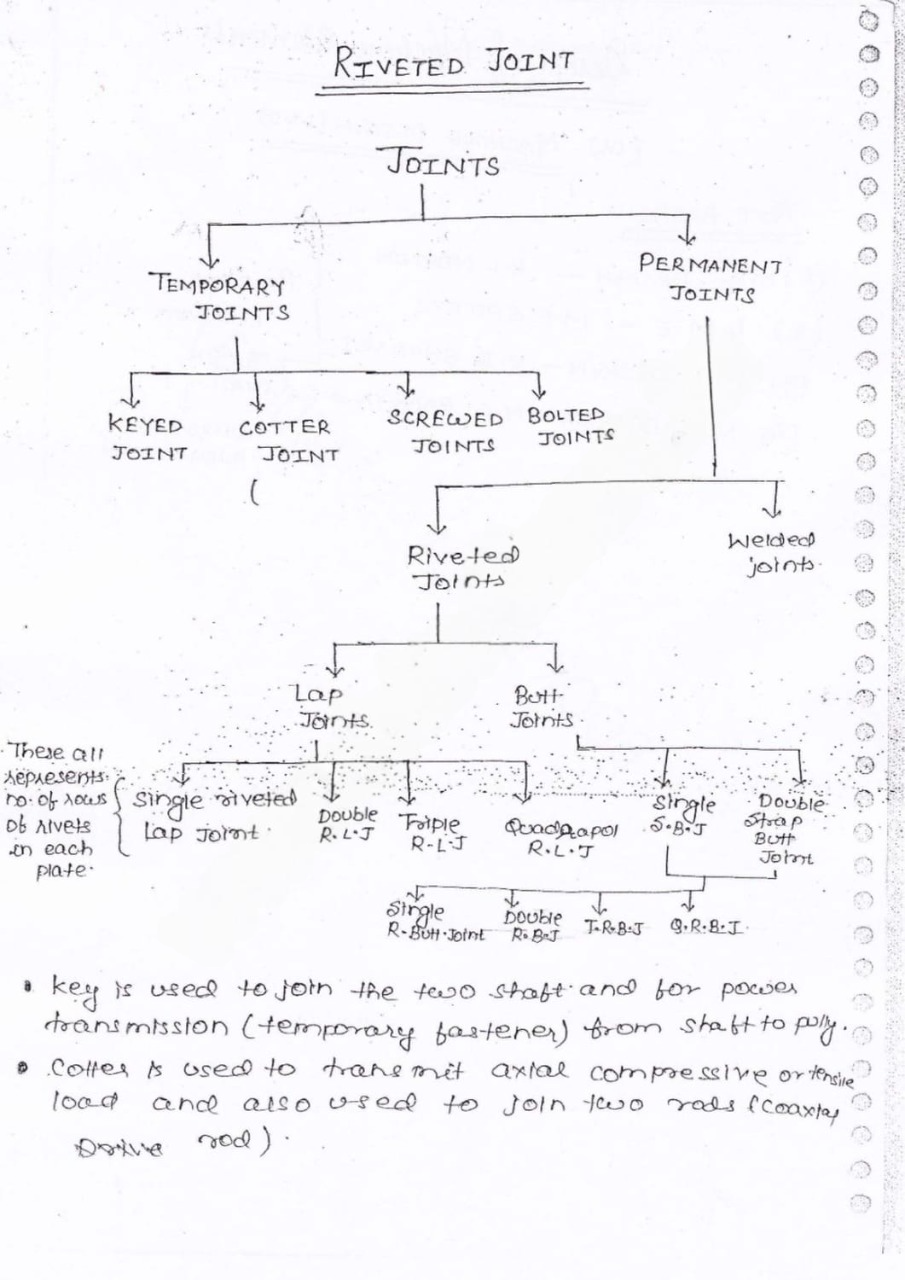 RIVETED JOINT
JOINTS
TEMPORARY
JOINTS
PERMANENT
JOINTS
KEYED
JOINT
COTTER
JOINT
SCREWED
JOINTS
BOLTED
JOINTS
(
Riveted
Joints
Welded
joints.
Lap
Joints.
Butt
Joints.
These all
represents.
no. of rows
of rivets
in each
plate.
Single riveted
Lap Joint.
Double
R.L.J
Triple
R-L-J
Quadrapol
R.L.J
Single
S.B.J
Double
Strap
Butt
Joint
Single
R-Butt.Joint
Double
R.B.J
T.R.B.J
Q.R.B.J.
• key is used to join the two shaft and for power
transmission (temporary fastener) from shaft to pully.
• Cotter is used to transmit axial compressive or tensile
load and also used to join two rods (Coaxial
Drive rod).